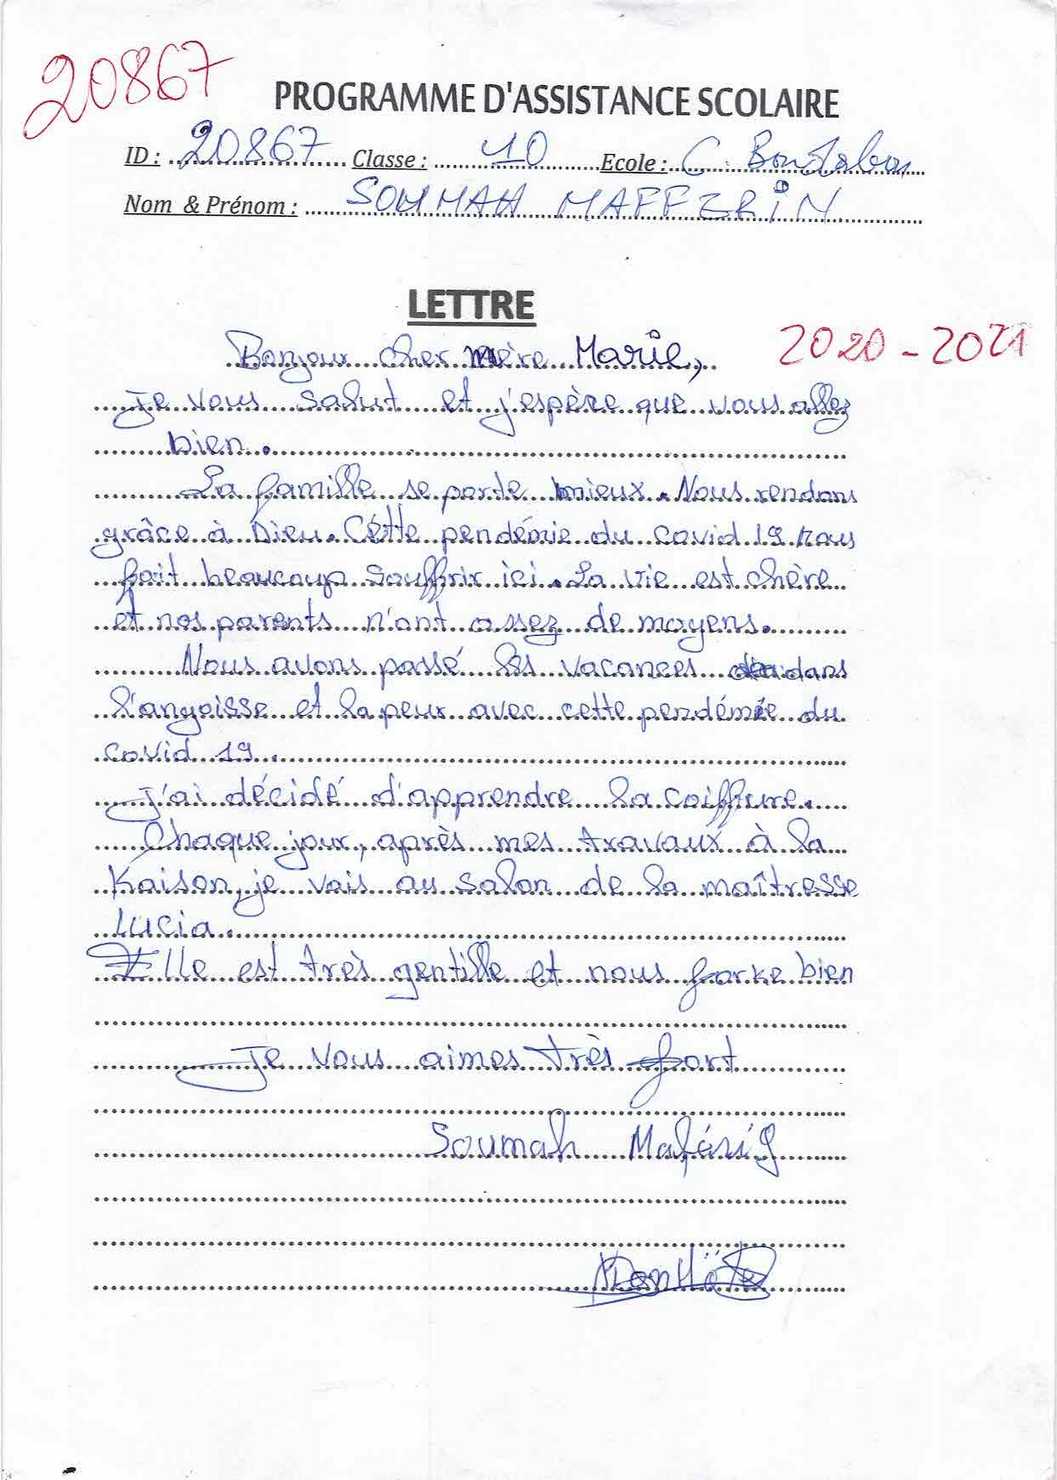 20867
PROGRAMME D'ASSISTANCE SCOLAIRE
ID : 20867 Classe : 10 Ecole : C. Bontabon
Nom & Prénom : SOUMAH MAFFERIN
LETTRE
Bonjour cher mère Marie,
2020 - 2021
Je vous salut et j'espère que vous allez
bien.
La famille se porte mieux. Nous rendons
grâce à Dieu. Cette pendémie du covid 19 nous
fait beaucoup souffrir ici. La vie est chère
et nos parents n'ont assez de moyens.
Nous avons passé les vacances dans
l'angoisse et la peur avec cette pendémie du
covid 19.
J'ai décidé d'apprendre la coiffure.
Chaque jour, après mes travaux à la
Kaison, je vais au salon de la maîtresse
Lucia.
Elle est très gentille et nous forke bien
Je vous aimes très fort
Soumah